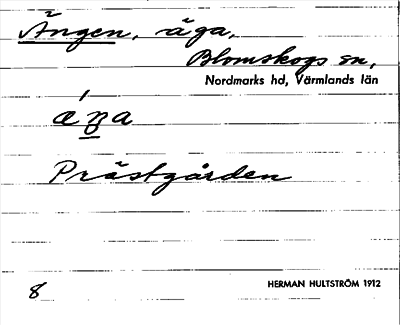 Ängen, äga,
Blomskogs sn,
Nordmarks hd, Värmlands län
Prästgården
8
HERMAN HULTSTRÖM 1912